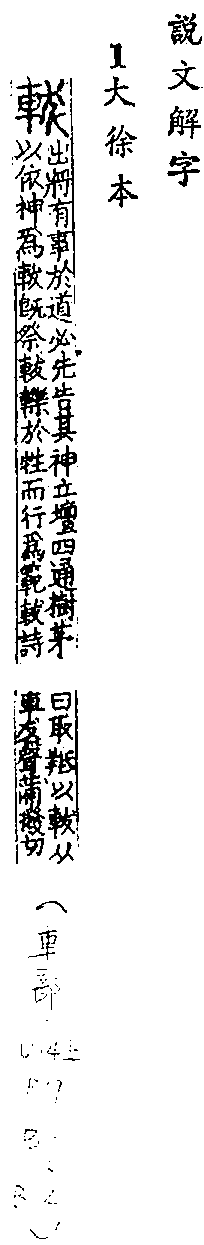 說文解字
1大徐本
出將有事於道必先告其神立壇四通樹茅
以依神為軷既祭軷轢於牲而行為範軷詩
曰取羝以軷从
車犮聲蒲撥切
(車部